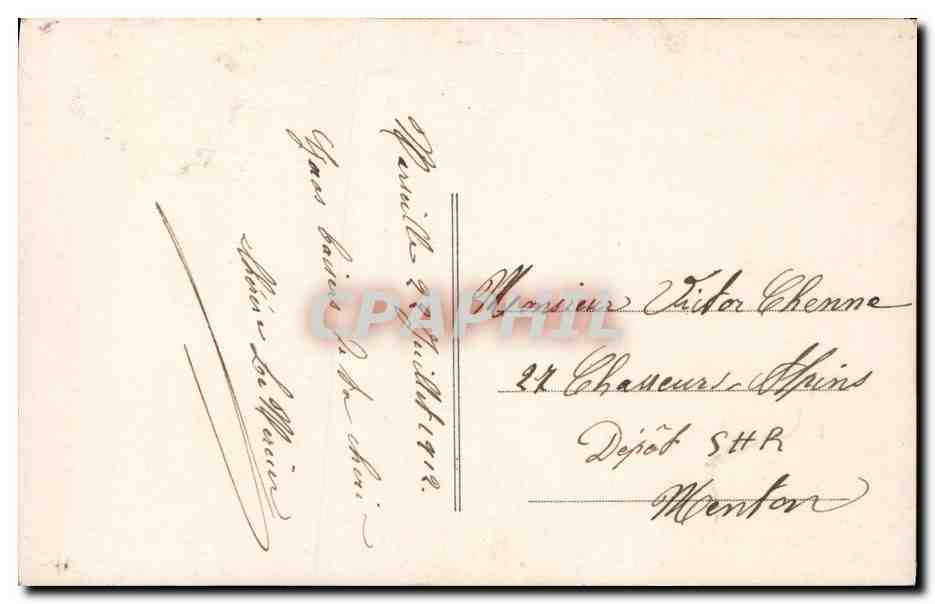 Marseille 27 Juillet 1912.
Gros baisers de ta cheri
Thérèse Le Mercier
Monsieur Victor Chenne
27 Chasseurs Alpins
Dépôt SHR
Menton
CPAPHIL